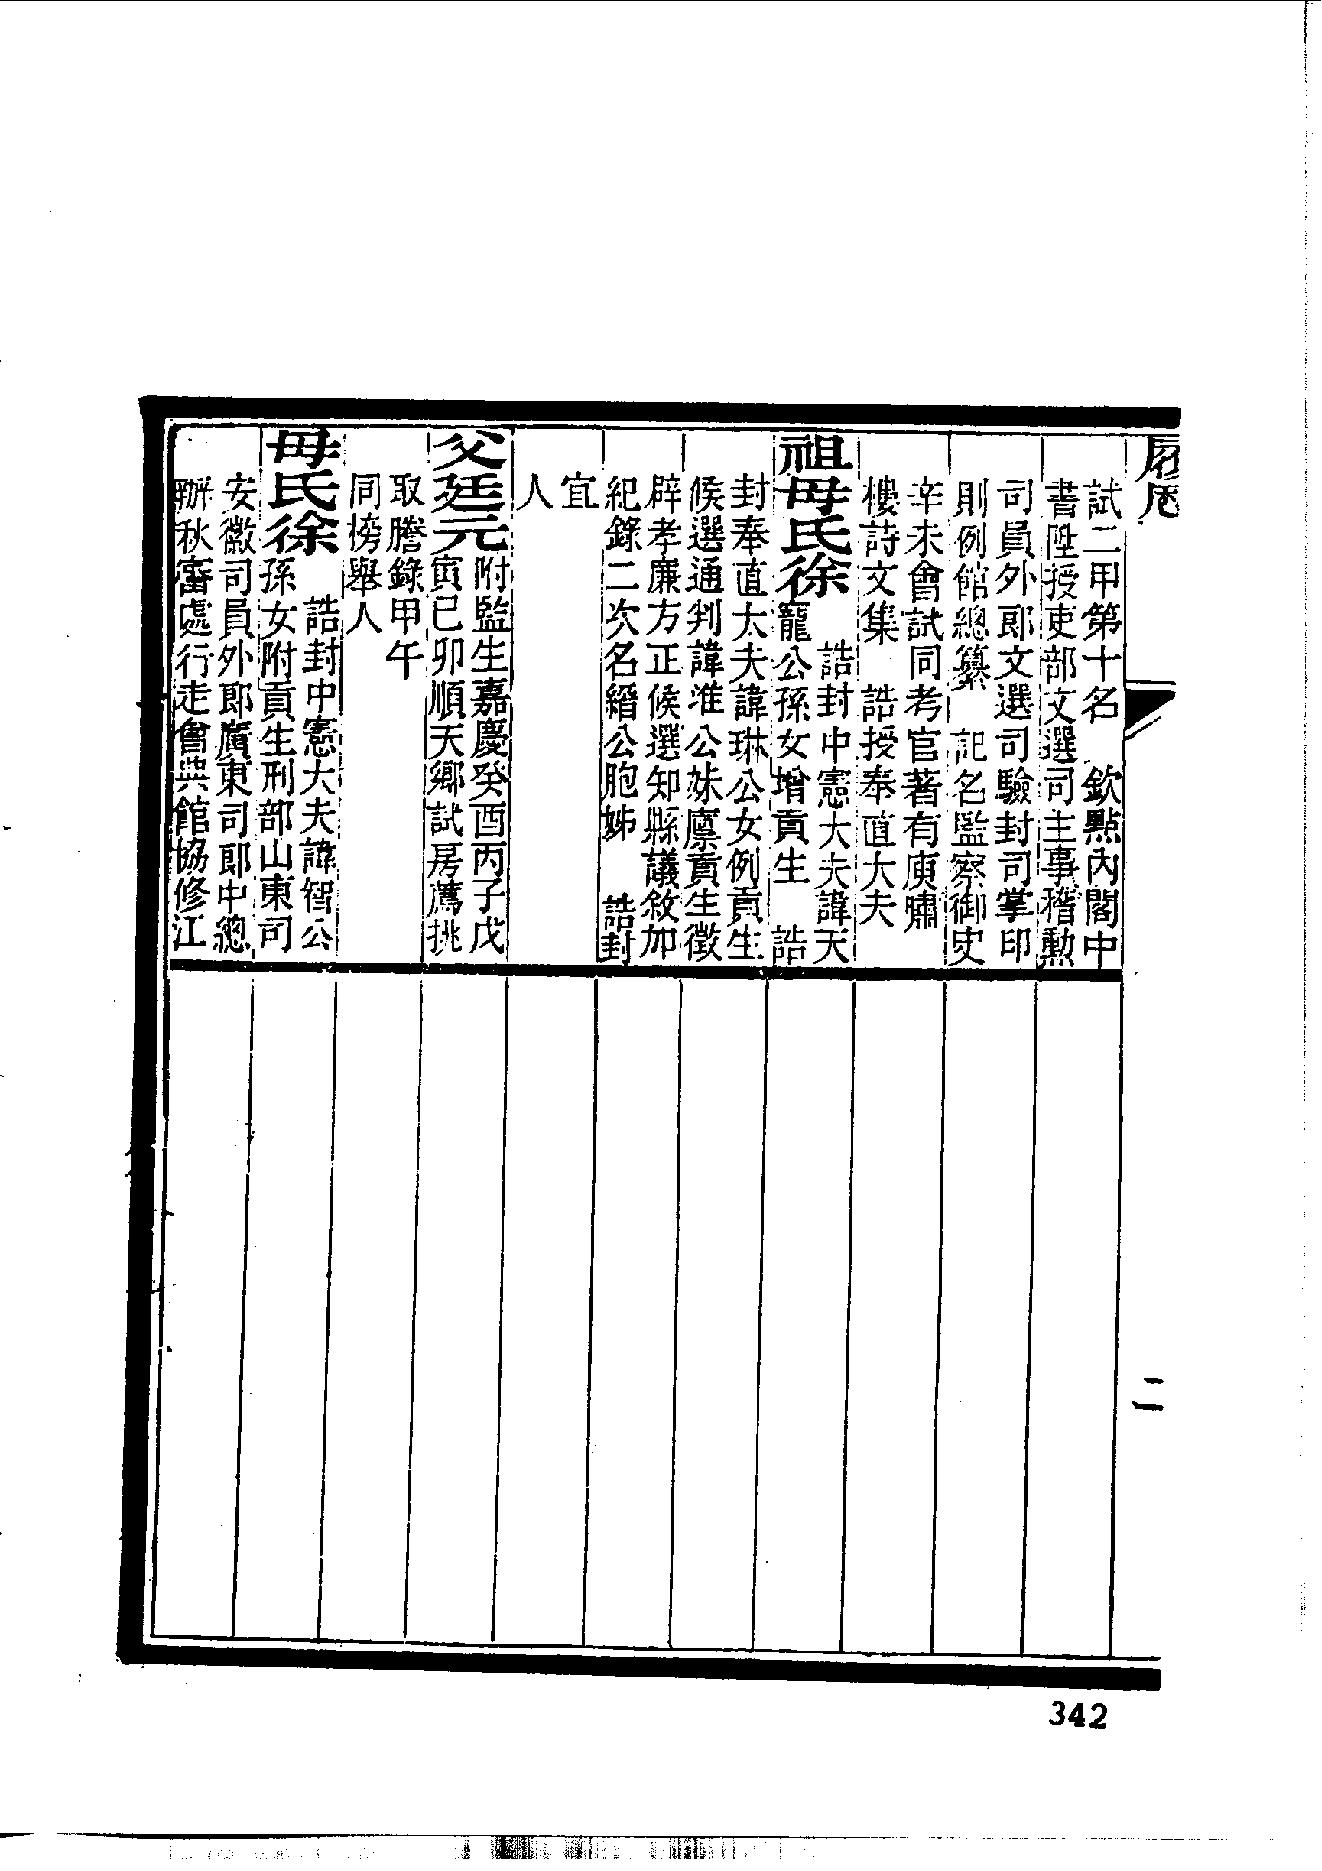 履歷
試二甲第十名 欽點內閣中
書陞授吏部文選司主事稽勳
司員外郎文選司驗封司掌印
則例館總纂 記名監察御史
辛未會試同考官著有庾嘯
樓詩文集 誥授奉直大夫
祖母氏徐 誥封中憲大夫諱天
寵公孫女增貢生 誥
封奉直大夫諱琳公女例貢生
候選通判諱准公妹廩貢生徵
辟孝廉方正候選知縣議敘加
紀錄二次名縉公胞姊 誥封
宜
人
父廷元 附監生嘉慶癸酉丙子戊
寅己卯順天鄉試房薦挑
取謄錄甲午
同榜舉人
母氏徐 誥封中憲大夫諱智公
孫女附貢生刑部山東司
安徽司員外郎廣東司郎中總
辦秋審處行走會典館協修江
二
342